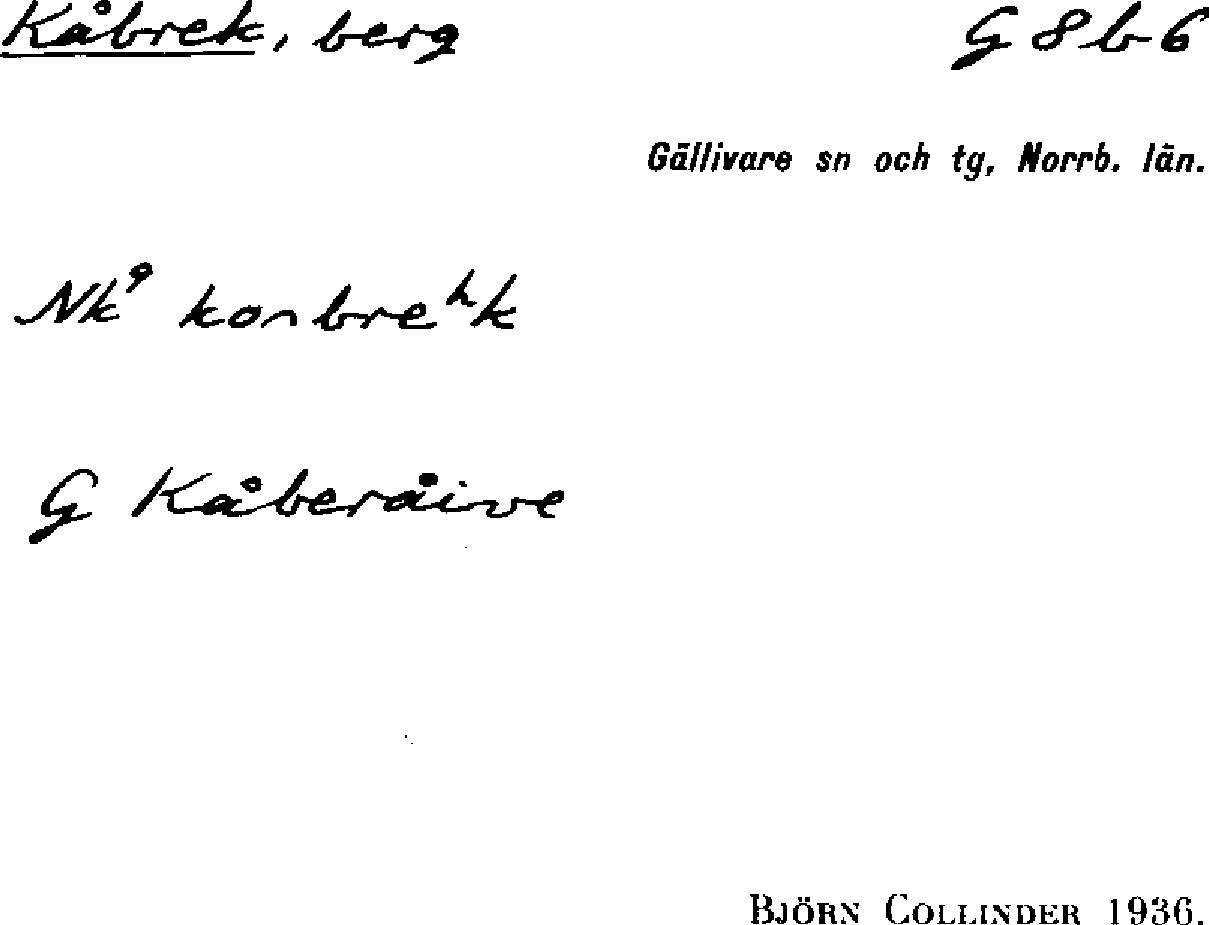 Kåbrek, berg G8b6
Gällivare sn och tg, Norrb. län.
Nk⁹ konbreʰk
G Kåberåive
BJÖRN COLLINDER 1936.